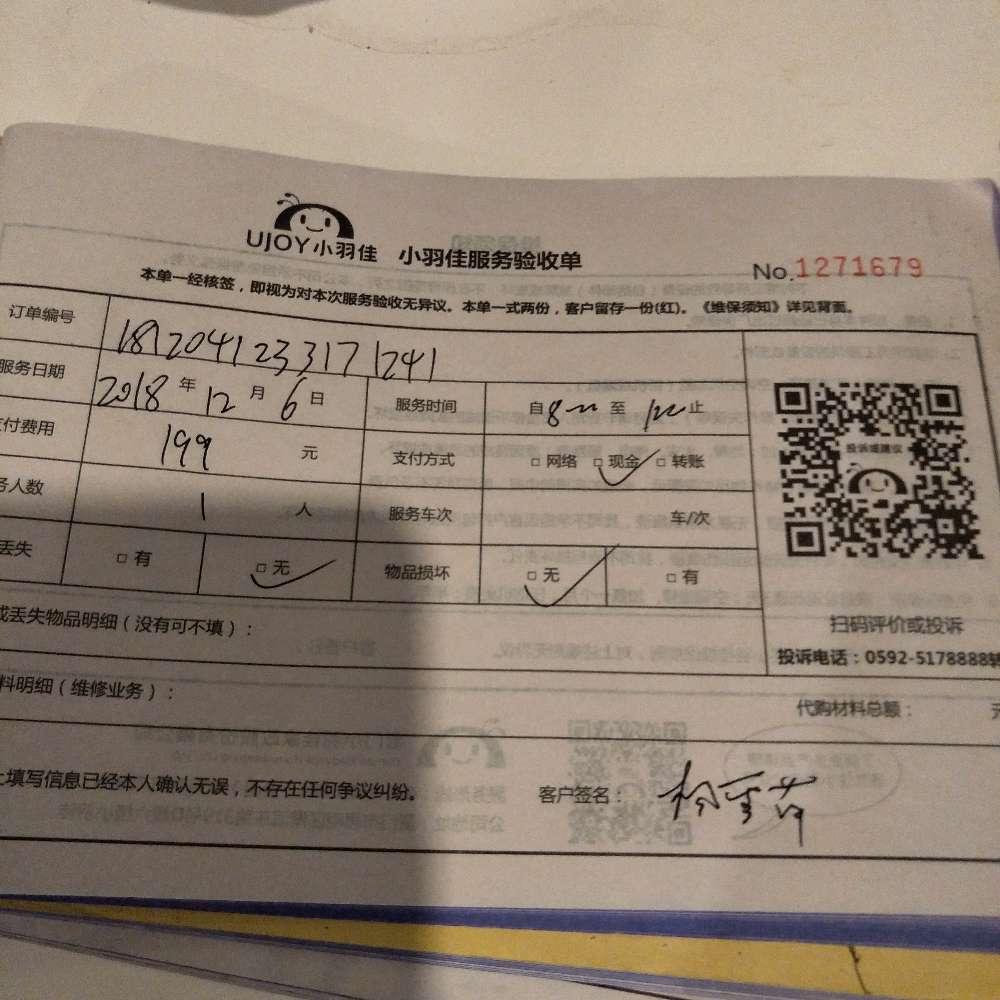 UJOY小羽佳 小羽佳服务验收单
No.1271679
本单一经核签，即视为对本次服务验收无异议。本单一式两份，客户留存一份(红)。《维保须知》详见背面。
订单编号 1812041233171241
服务日期 2018 年 12 月 6 日 服务时间 自 8 至 止
付费用 199 元 支付方式 □ 网络 □ 现金 □ 转账
务人数 1 人 服务车次 车/次
丢失 □ 有 □ 无 物品损坏 □ 无 □ 有
投诉或建议
扫码评价或投诉
投诉电话：0592-5178888转
或丢失物品明细（没有可不填）：
料明细（维修业务）： 代购材料总额：
上填写信息已经本人确认无误，不存在任何争议纠纷。 客户签名：